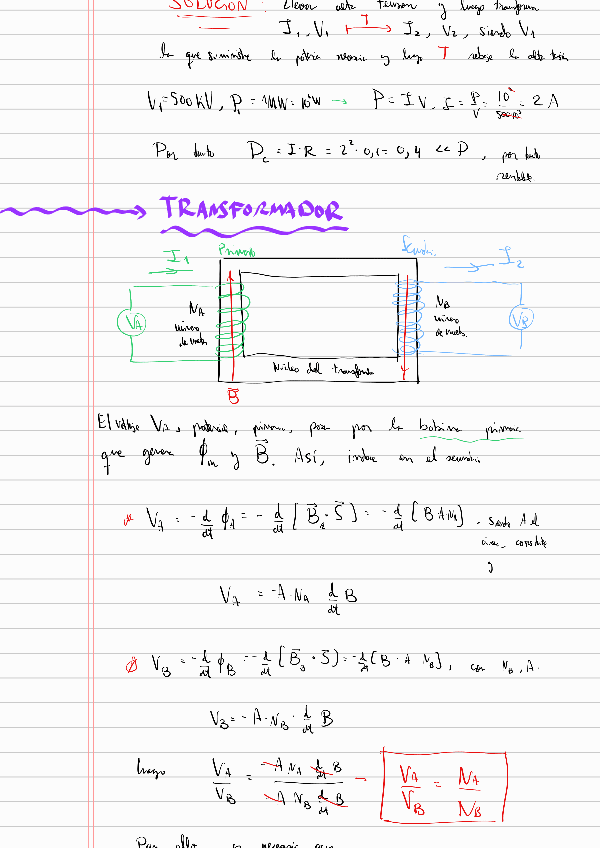 SOLUCIÓN: Llevar alta tensión y luego transforma
I₁, V₁ T→ I₂, V₂, siendo V₁
la que suministra la potencia necesaria y luego T rebaja la alta
V₁=500kV, P₁=1MW=10⁶W → P=IV, I=P/V=10⁶/500·10³=2A
Por tanto P_c = I·R = 2²·0,1=0,4 << P, por tanto
rentable.
TRANSFORMADOR
I₁ Primario Secun. I₂
V_A N_A número de vueltas N_B número de vueltas V_B
Núcleo del transforma
B⃗
El voltaje V_A, potencia, primario, pasa por la bobina primaria
que genera ϕ_m y B⃗. Así, induce en el secundario
V_A = -d/dt ϕ_A = -d/dt [B⃗_A·S⃗] = -d/dt [B A N_A], siendo A el
área, constante
y
V_A = -A·N_A d/dt B
V_B = -d/dt ϕ_B = -d/dt [B⃗_B·S⃗] = -d/dt [B·A N_B], con N_B, A.
V_B = -A·N_B·d/dt B
luego V_A/V_B = -A N_A d/dt B / -A N_B d/dt B → V_A/V_B = N_A/N_B
Por ello, es necesario que